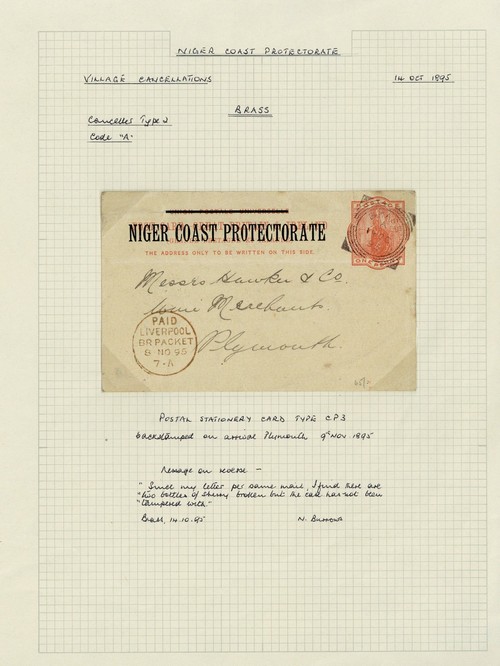 NIGER COAST PROTECTORATE
VILLAGE CANCELLATIONS
14 OCT 1895
BRASS
Canceller Type 2
Code "A"
NIGER COAST PROTECTORATE
THE ADDRESS ONLY TO BE WRITTEN ON THIS SIDE.
POSTAGE
Messrs Hawker & Co.
Wine Merchants.
Plymouth.
PAID
LIVERPOOL
BR PACKET
8 NO 95
7-A
POSTAL STATIONERY CARD TYPE CP3
backstamped on arrival Plymouth 9th NOV. 1895
Message on reverse -
"Since my letter per same mail, I find there are
"two bottles of sherry broken but the case has not been
"tampered with."
Brass, 14.10.95
N.